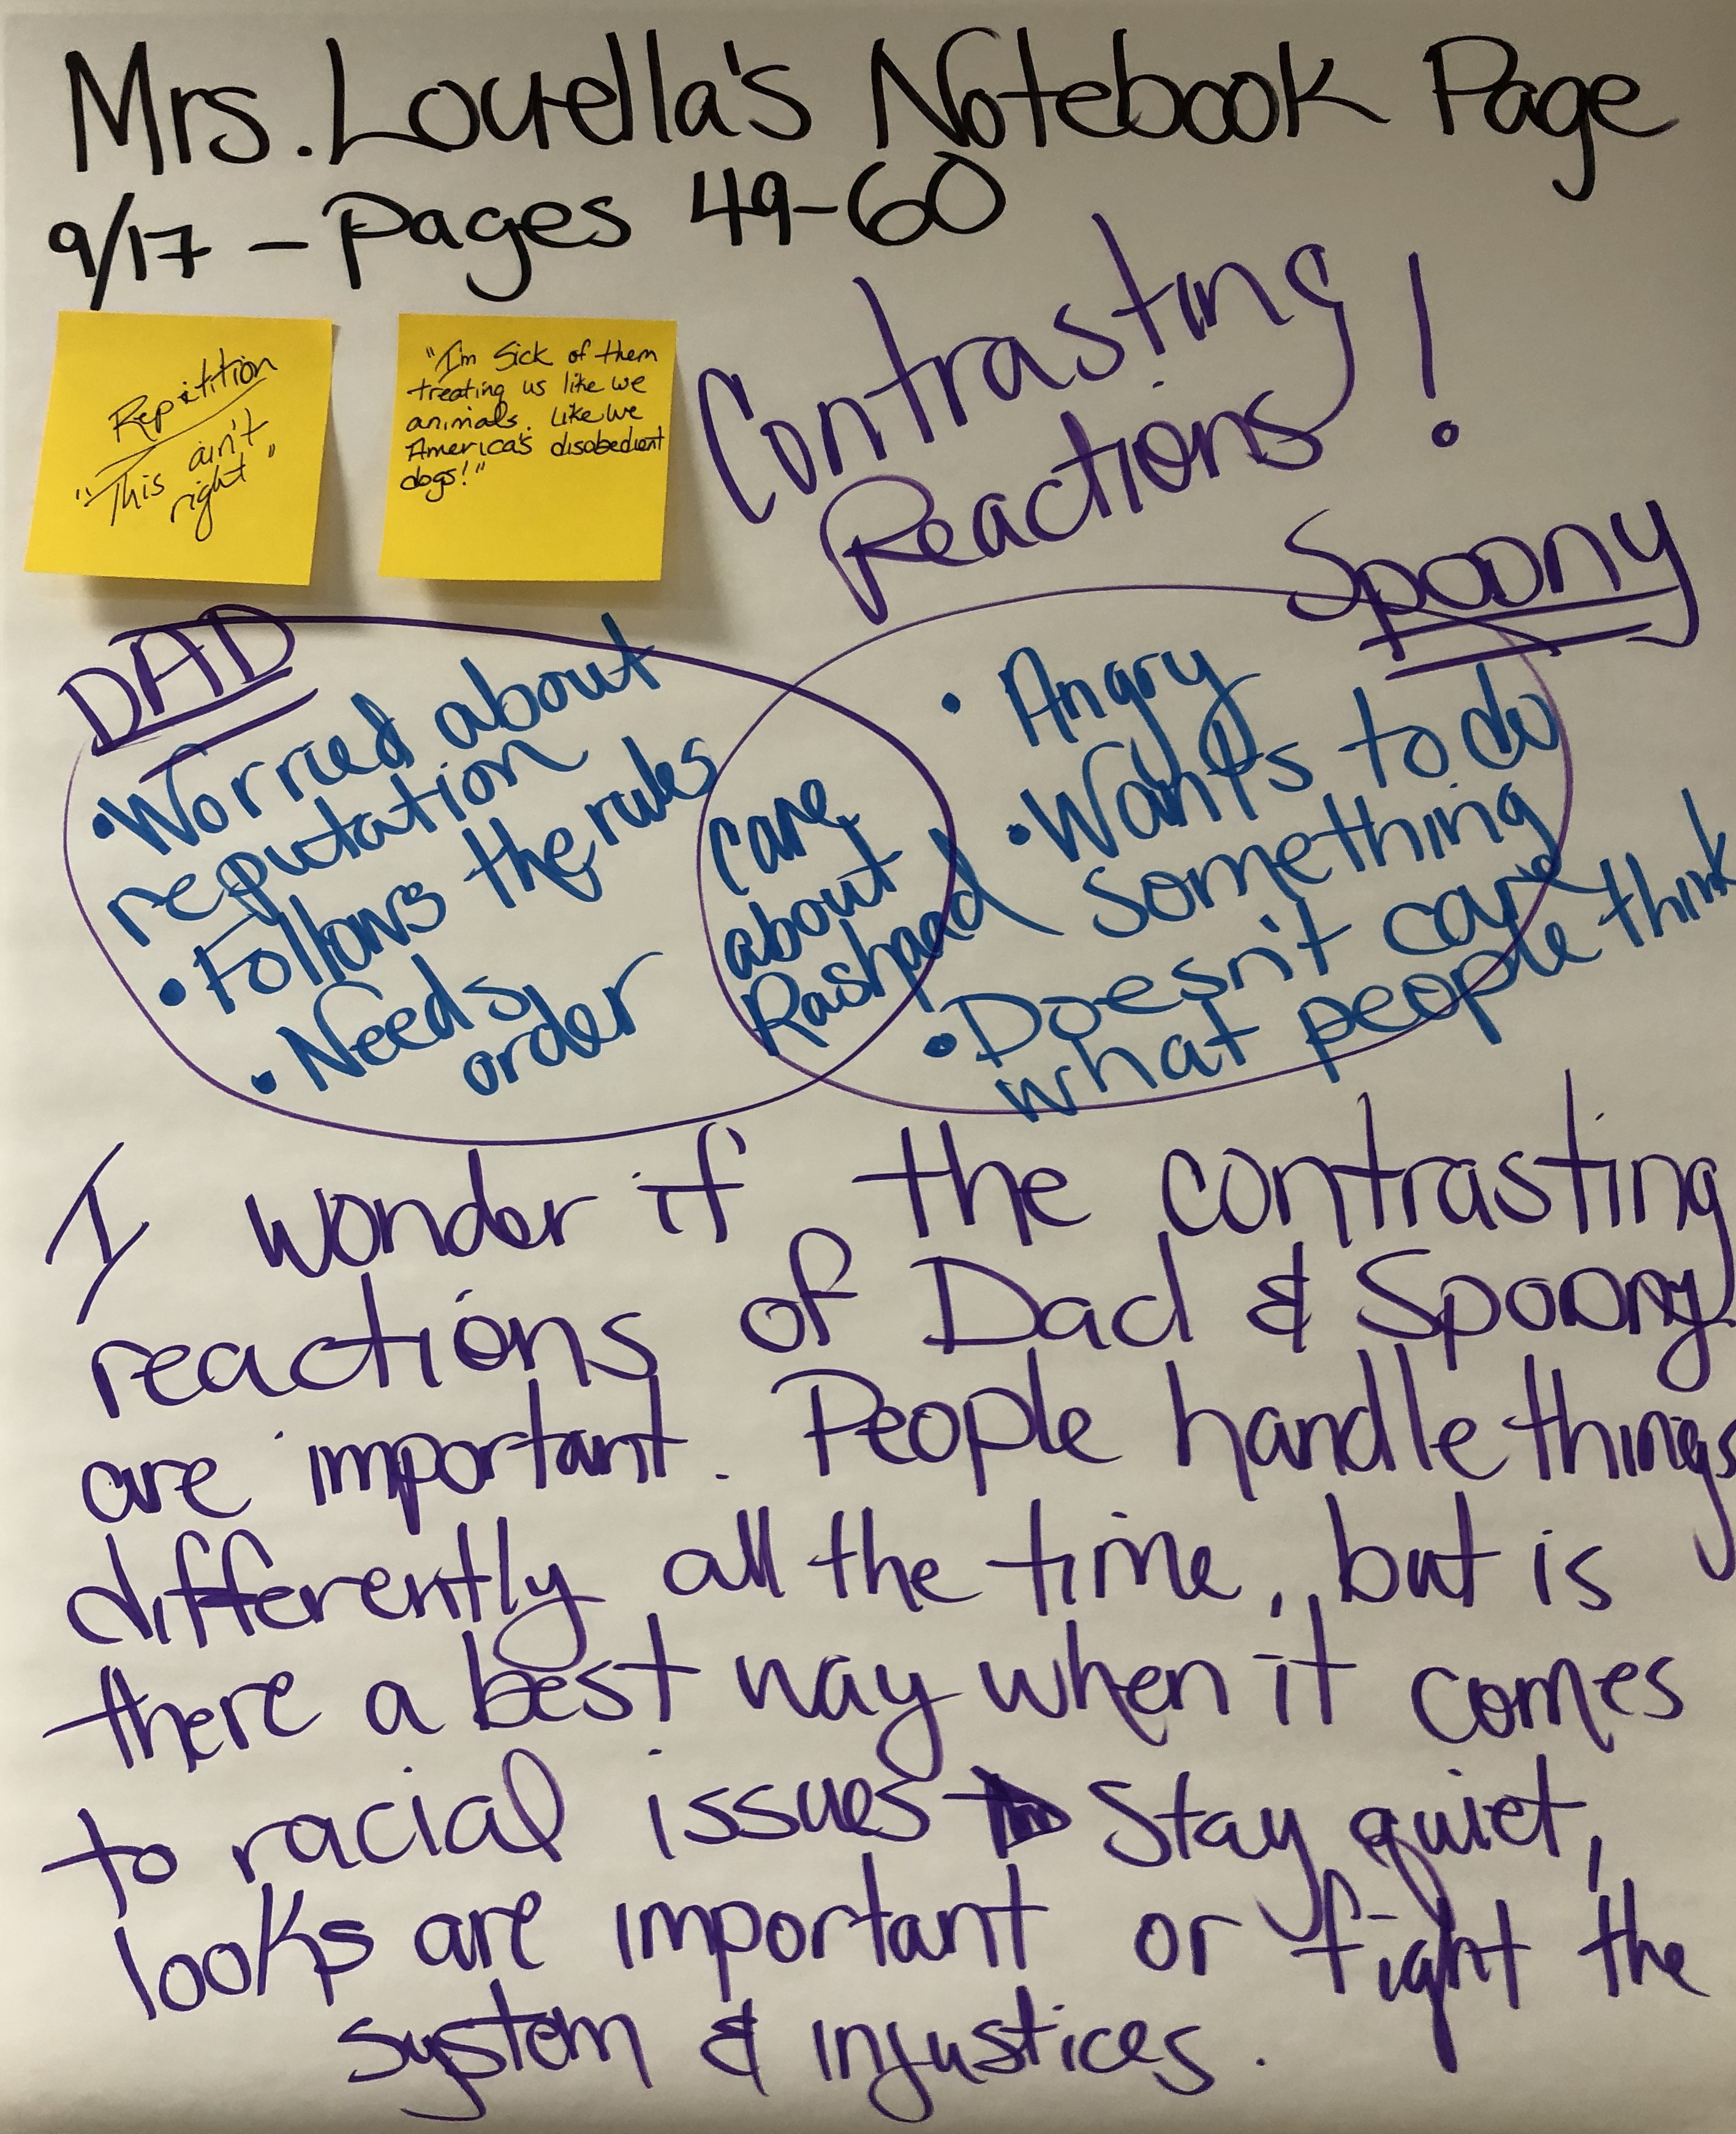 Mrs. Lourella's Notebook Page
9/17 - Pages 49-60
Repitition
"This ain't
right"
"I'm sick of them
treating us like we
animals. Like we
America's disobedient
dogs!"
Contrasting
Reactions!
DAD
• Worried about
reputation
• Follows the rules
• Needs
order
Care
about
Rashaad
Spoony
• Angry
• Wants to do
something
• Doesn't care
what people think
I wonder if the contrasting
reactions of Dad & Spoony
are important. People handle things
differently all the time, but is
there a best way when it comes
to racial issues Stay quiet,
looks are important or fight the
system & injustices.